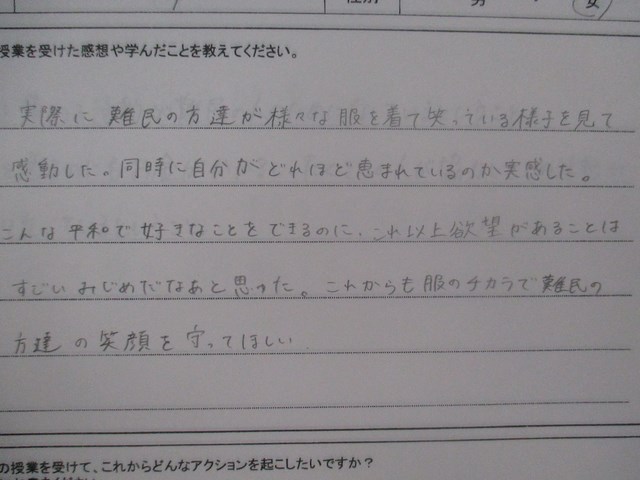 性別
男 ・ 女
授業を受けた感想や学んだことを教えてください。
実際に難民の方達が様々な服を着て笑っている様子を見て
感動した。同時に自分がどれほど恵まれているのか実感した。
こんな平和で好きなことをできるのに、これ以上欲望があることは
すごいみじめだなあと思った。これからも服のチカラで難民の
方達の笑顔を守ってほしい
の授業を受けて、これからどんなアクションを起こしたいですか？